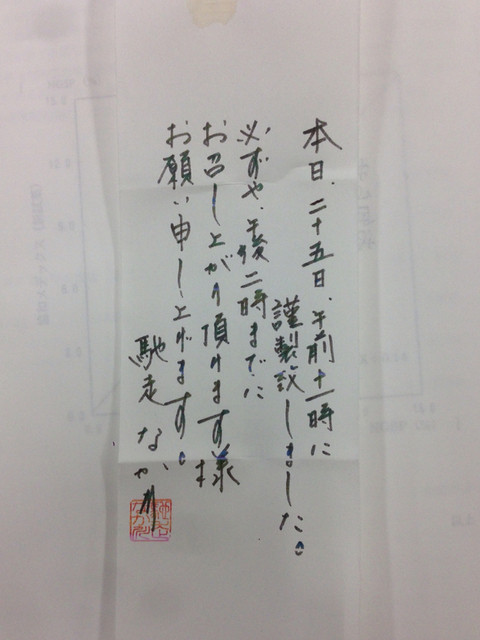 本日、二十五日、午前十一時に
謹製致しました。
必ずや、午後二時までに
お召し上がり頂けます様
お願い申し上げます。
馳走 なかむ